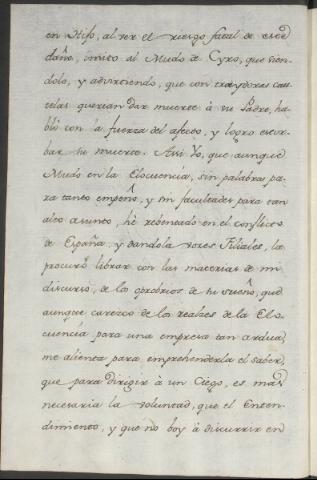 en Hijo, al ver el riesgo fatal de este
daño, imito al Mudo de Cyro, que vien-
dolo, y advirtiendo, que con traydoras cau-
telas querian dar muerte à su Padre, ha-
blò con la fuerza del afecto, y logrò estor-
bar su muerte. Assi Yo, que aunque
Mudo en la Elocuencia, sin palabras pa-
ra tanto empeño, y sin facultades para tan
alto asunto, hè rebentado en el conflicto
de España, y dandola voces Filiales, la
procurò librar con las materias de mi
discurso, de los oprobrios de su sueño, que
aunque carezco de los realzes de la Elo-
cuencia para una empresa tan ardua,
me alienta para emprehenderla el saber,
que para dirigir à un Ciego, es mas
necesaria la voluntad, que el Enten-
dimiento, y que no boy à discurrir en